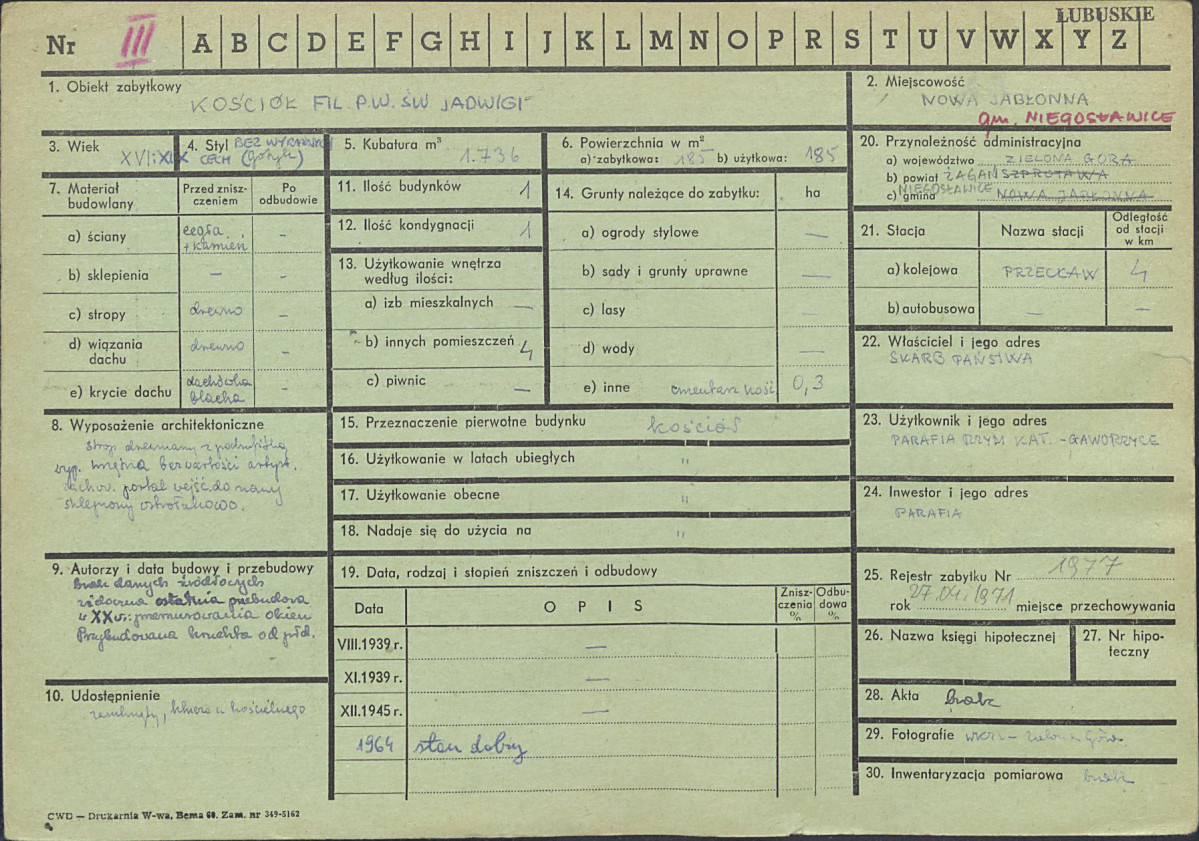 ŁUBUSKIE
Nr III A B C D E F G H I J K L M N O P R S T U V W X Y Z
1. Obiekt zabytkowy
KOŚCIÓŁ FIL P.W. ŚW JADWIGI
2. Miejscowość
NOWA JABŁONNA
gm. NIEGOSŁAWICE
3. Wiek
XVI i XIX
4. Styl BEZ WYRAŹNYCH
CECH (Gotyk)
5. Kubatura m³
1.736
6. Powierzchnia w m²
a) zabytkowa: 185 b) użytkowa: 185
7. Materiał budowlany
Przed zniszczeniem
Po odbudowie
a) ściany cegła + kamień –
b) sklepienia – –
c) stropy drewno –
d) wiązania dachu drewno –
e) krycie dachu dachówka blacha –
8. Wyposażenie architektoniczne
strop drewniany z podsufitką
wyp. wnętrza bez wartości artyst.
zachow. portal wejśc. do nawy
sklepiony ostrołukowo.
9. Autorzy i data budowy i przebudowy
brak danych źródłowych
widoczna ostatnia przebudowa
w XX w.: przemurowania okien
Przybudowana kruchta od płd.
10. Udostępnienie
zamknięty, klucz u kościelnego
11. Ilość budynków 1
12. Ilość kondygnacji 1
13. Użytkowanie wnętrza
według ilości:
a) izb mieszkalnych –
b) innych pomieszczeń 4
c) piwnic –
14. Grunty należące do zabytku: ha
a) ogrody stylowe –
b) sady i grunty uprawne –
c) lasy
d) wody –
e) inne cmentarz kość 0,3
15. Przeznaczenie pierwotne budynku kościół
16. Użytkowanie w latach ubiegłych "
17. Użytkowanie obecne "
18. Nadaje się do użycia na "
19. Data, rodzaj i stopień zniszczeń i odbudowy
Data O P I S Zniszczenia % Odbudowa %
VIII.1939 r. –
XI.1939 r. –
XII.1945 r. –
1964 stan dobry
20. Przynależność administracyjna
a) województwo ZIELONA GÓRA
b) powiat ŻAGAŃ SZPROTAWA
NIEGOSŁAWICE
c) gmina NOWA JABŁONNA
21. Stacja Nazwa stacji Odległość od stacji w km
a) kolejowa PRZECŁAW 4
b) autobusowa – –
22. Właściciel i jego adres
SKARB PAŃSTWA
23. Użytkownik i jego adres
PARAFIA RZYM KAT. - GAWORZYCE
24. Inwestor i jego adres
PARAFIA
25. Rejestr zabytku Nr 1977
rok 27.04.1971 miejsce przechowywania
26. Nazwa księgi hipotecznej
27. Nr hipoteczny
28. Akta brak
29. Fotografie WKZ – Zielona Góra
30. Inwentaryzacja pomiarowa brak
CWD — Drukarnia W-wa, Bema 60. Zam. nr 349-5162